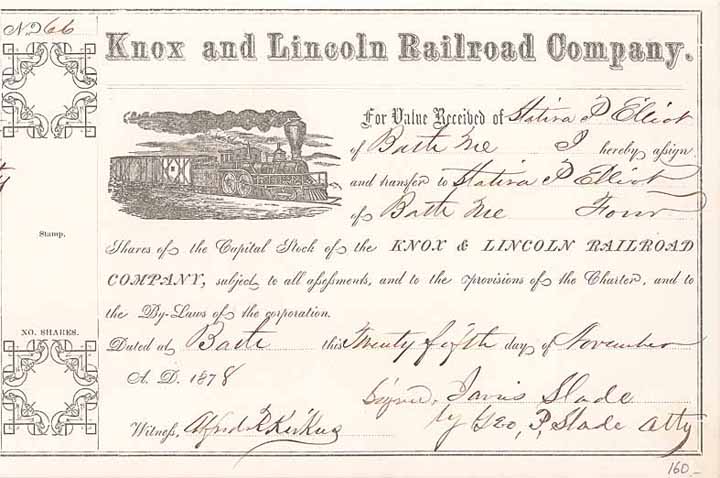 No 66
Knox and Lincoln Railroad Company.
For Value Received of Statira P Elliot
of Bath Me I hereby assign
and transfer to Statira P Elliot
of Bath Me Four
Stamp.
Shares of the Capital Stock of the KNOX & LINCOLN RAILROAD
COMPANY, subject to all assessments, and to the provisions of the Charter, and to
the By-Laws of the corporation.
NO. SHARES.
Dated at Bath this Twenty fifth day of November
A. D. 1878
Signed, Jarvis Slade
by Geo, P, Slade Atty
Witness, Alfred
160 –